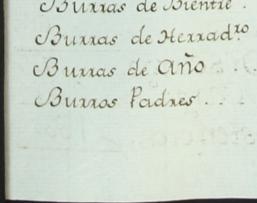 Burras de Vientre .
Burras de Herradro
Burras de Año . .
Burros Padres . .